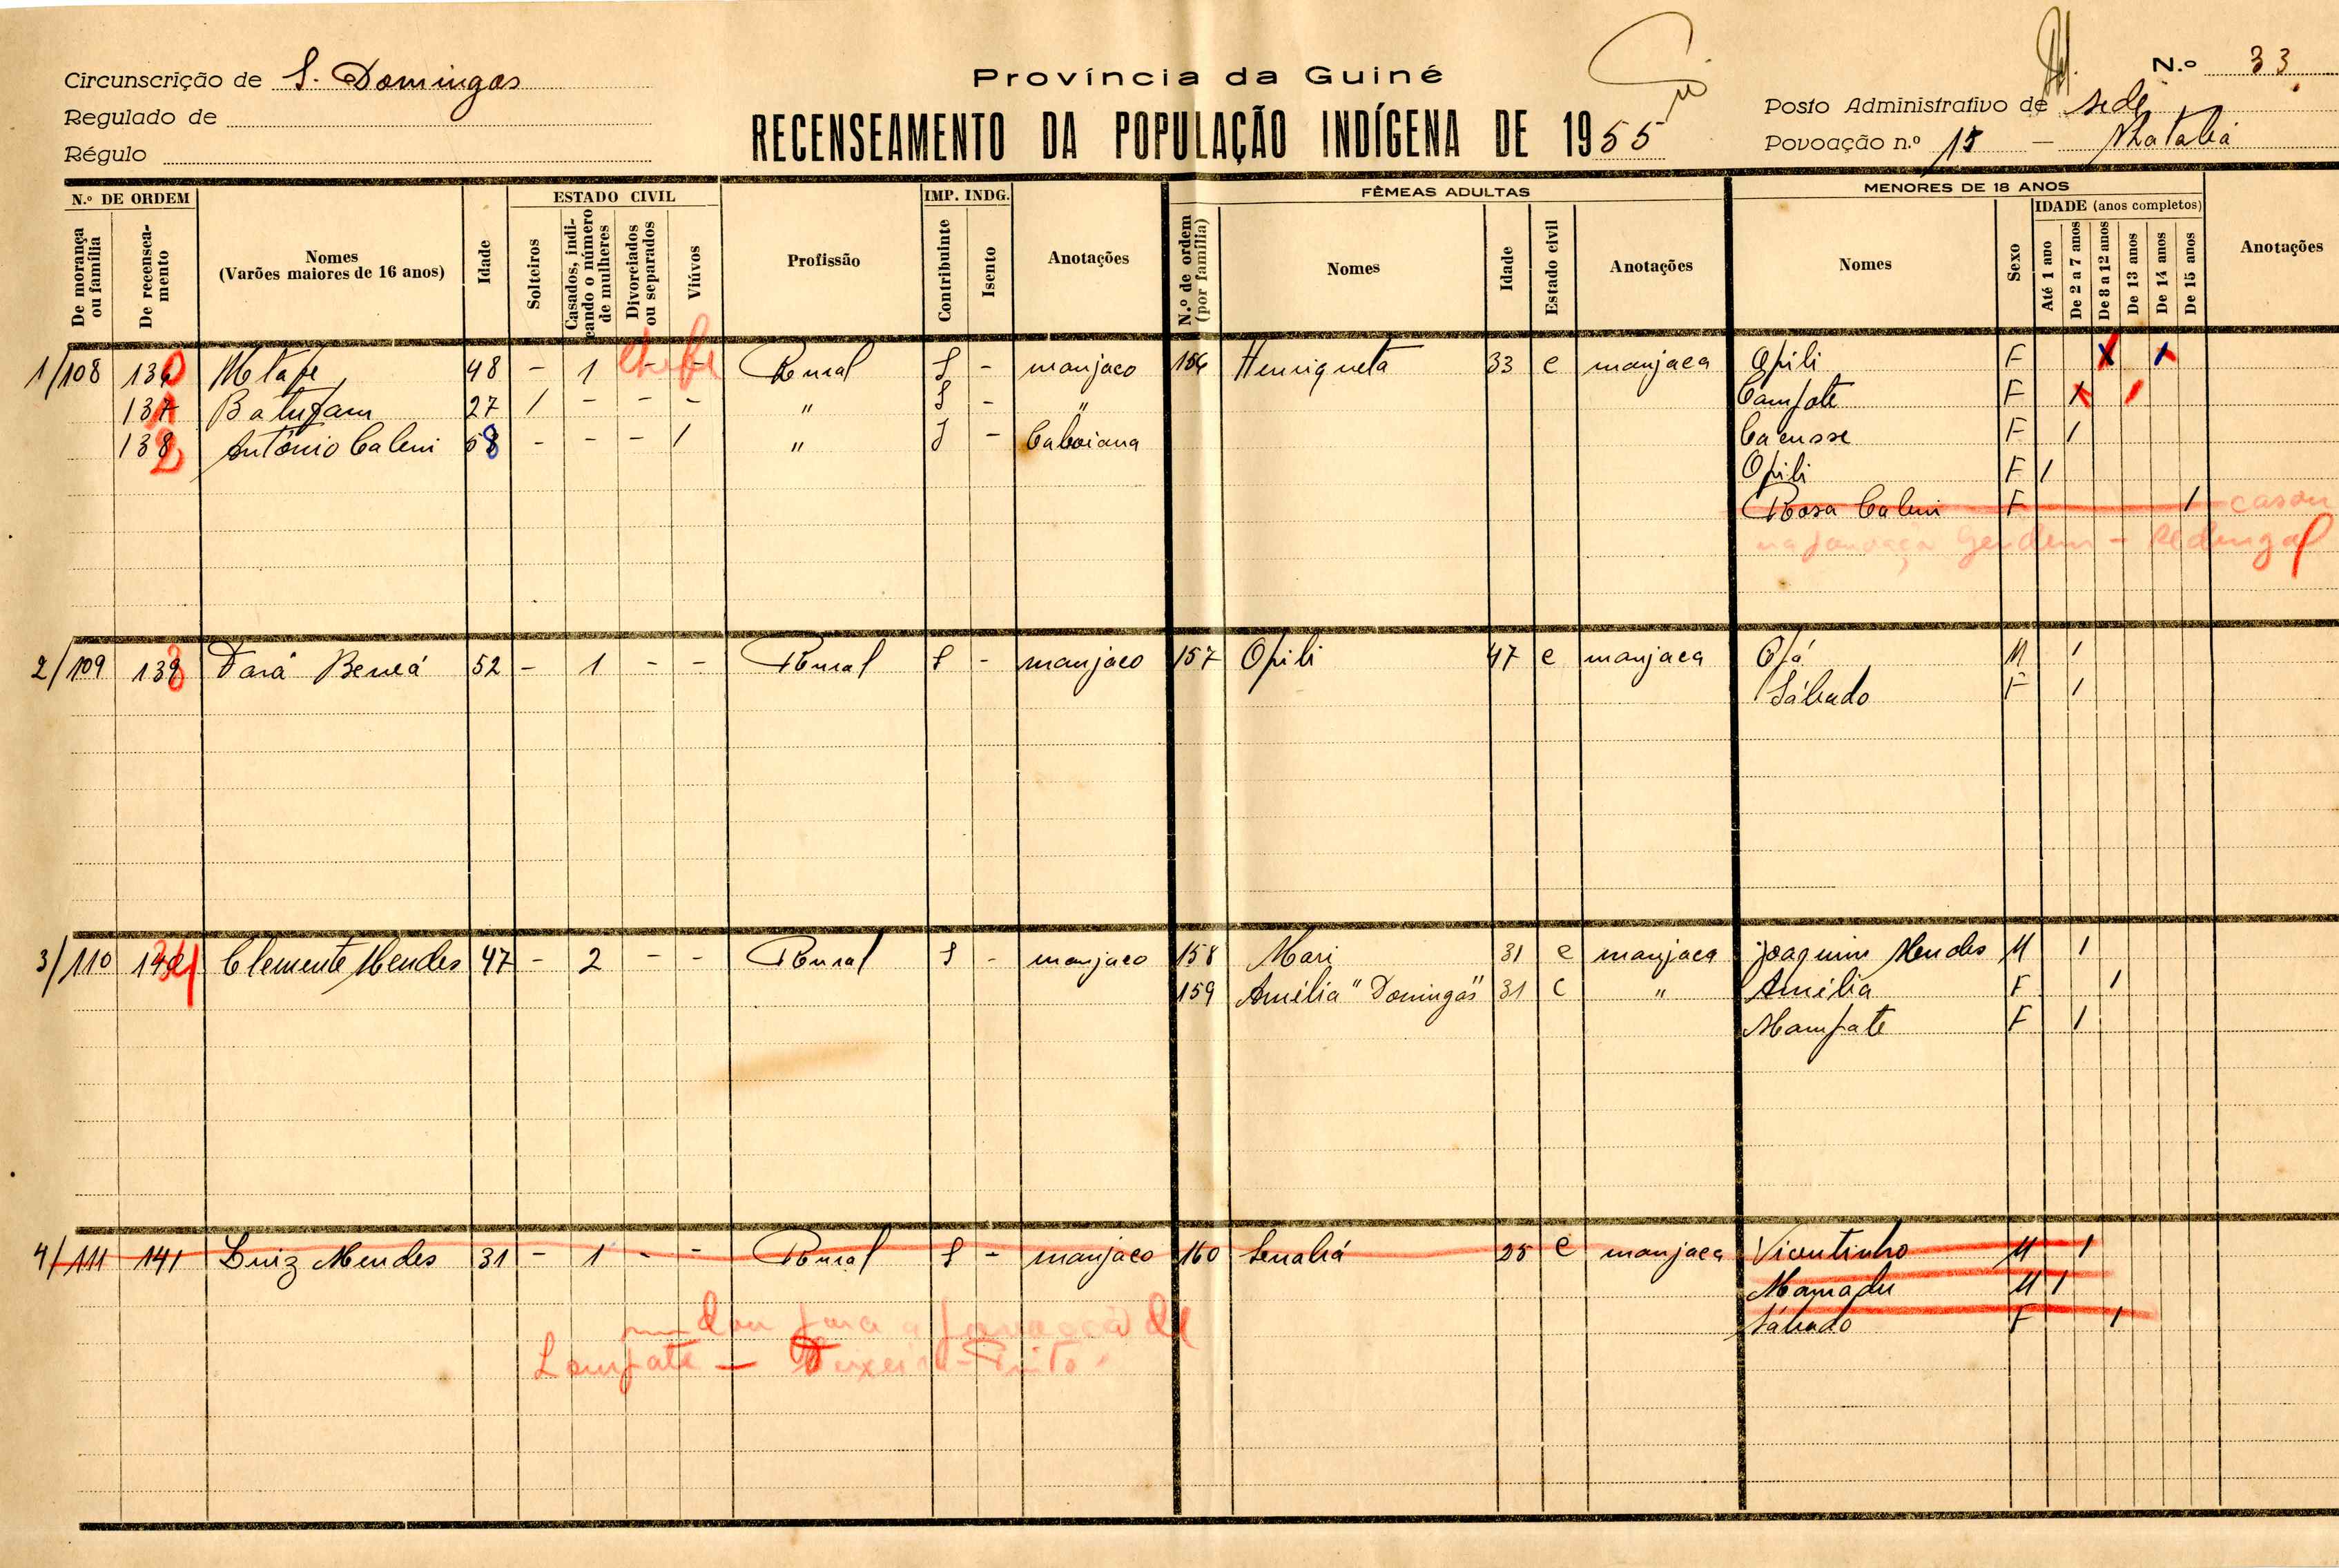 Circunscrição de S. Domingos
Regulado de
Régulo
Província da Guiné
RECENSEAMENTO DA POPULAÇÃO INDÍGENA DE 1955
N.º 33
Posto Administrativo de sede
Povoação n.º 15 —
N.º DE ORDEM
De morança ou família
De recenseamento
Nomes
(Varões maiores de 16 anos)
Idade
ESTADO CIVIL
Solteiros
Casados, indicando o número de mulheres
Divorciados ou separados
Viúvos
Profissão
IMP. INDG.
Contribuinte
Isento
Anotações
FÊMEAS ADULTAS
N.º de ordem (por família)
Nomes
Idade
Estado civil
Anotações
MENORES DE 18 ANOS
Nomes
Sexo
IDADE (anos completos)
Até 1 ano
De 2 a 7 anos
De 8 a 12 anos
De 13 anos
De 14 anos
De 15 anos
Anotações
1/108 136 48 - 1 - - Rural S - manjaco 156 Henriqueta 33 c manjaca Opili F
chefe
137 27 1 - - - " S - " F
138 António Caleni 58 - - - 1 " S - Caboiana F 1
Opili F 1
Rosa Caleni F 1 casou
2/109 139 52 - 1 - - Rural S - manjaco 157 Opili 47 c manjaca M 1
Sábado F 1
3/110 Clemente Mendes 47 - 2 - - Rural S - manjaco 158 Mari 31 c manjaca Joaquim Mendes M 1
159 Amélia "Domingas" 31 c " Amélia F 1
Mampate F 1
4/111 141 Luiz Mendes 31 - 1 - - Rural S - manjaco 160 25 c manjaca Vicentinho M 1
Mamadu M 1
Sábado F 1
mudou para a povoação de
Lempate — Teixeira Pinto